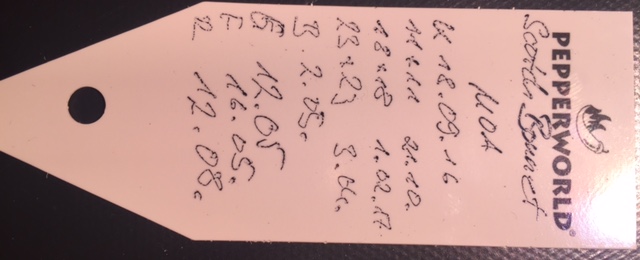 PEPPERWORLD®
Scotch Bonnet
MOA
18.09.16
11x11 21.10.
18x18 1.02.17
23x23 3.04.
B 2.05.
12.05
F 16.05.
R 12.08.